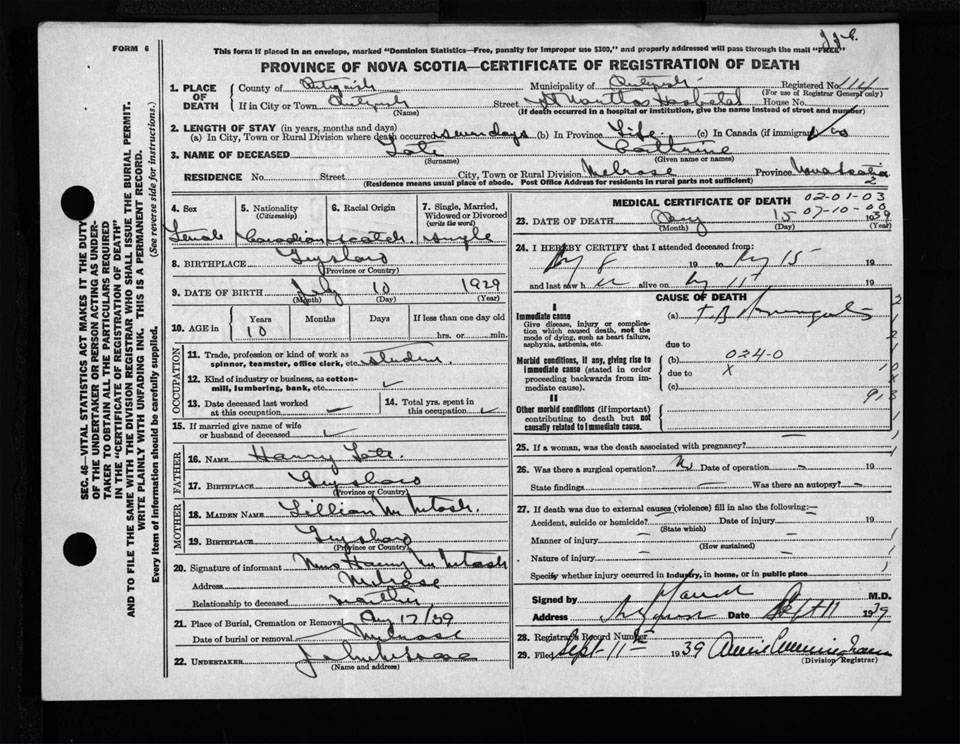 FORM 6
This form if placed in an envelope, marked "Dominion Statistics—Free, penalty for improper use $300," and properly addressed will pass through the mail "FREE"
PROVINCE OF NOVA SCOTIA—CERTIFICATE OF REGISTRATION OF DEATH
SEC. 46—VITAL STATISTICS ACT MAKES IT THE DUTY
OF THE UNDERTAKER OR PERSON ACTING AS UNDER-
TAKER TO OBTAIN ALL THE PARTICULARS REQUIRED
IN THE "CERTIFICATE OF REGISTRATION OF DEATH"
AND TO FILE THE SAME WITH THE DIVISION REGISTRAR WHO SHALL ISSUE THE BURIAL PERMIT.
WRITE PLAINLY WITH UNFADING INK. THIS IS A PERMANENT RECORD.
Every item of information should be carefully supplied. (See reverse side for instructions.)
1. PLACE OF DEATH County of Antigonish Municipality of Antigonish Registered No. 114
(For use of Registrar General only)
If in City or Town Antigonish Street St Marthas Hospital House No.
(Name) (If death occurred in a hospital or institution, give the name instead of street and number)
2. LENGTH OF STAY (in years, months and days)
(a) In City, Town or Rural Division where death occurred seven days (b) In Province Life (c) In Canada (if immigrant)
3. NAME OF DECEASED Catherine
(Surname) (Given name or names)
RESIDENCE No. Street City, Town or Rural Division Melrose Province Nova Scotia
(Residence means usual place of abode. Post Office Address for residents in rural parts not sufficient) 2
4. Sex 5. Nationality (Citizenship) 6. Racial Origin 7. Single, Married, Widowed or Divorced (write the word)
Female Canadian Scotch single
8. BIRTHPLACE Guysboro
(Province or Country)
9. DATE OF BIRTH July 10 1929
(Month) (Day) (Year)
10. AGE in Years Months Days If less than one day old
10 hrs. or min.
OCCUPATION
11. Trade, profession or kind of work as spinner, teamster, office clerk, etc. student
12. Kind of industry or business, as cotton-mill, lumbering, bank, etc.
13. Date deceased last worked at this occupation 14. Total yrs. spent in this occupation
15. If married give name of wife or husband of deceased
FATHER
16. NAME Harry
17. BIRTHPLACE Guysboro
(Province or Country)
MOTHER
18. MAIDEN NAME Lillian McIntosh
19. BIRTHPLACE Guysboro
(Province or Country)
20. Signature of informant Mrs Harry McIntosh
Address Melrose
Relationship to deceased mother
21. Place of Burial, Cremation or Removal Aug 17/39
Date of burial or removal Melrose
22. UNDERTAKER
(Name and address)
MEDICAL CERTIFICATE OF DEATH 02-01-03
07-10-00
23. DATE OF DEATH Aug 15 1939
(Month) (Day) (Year)
24. I HEREBY CERTIFY that I attended deceased from:
Aug 8 19 to Aug 15 19
and last saw her alive on Aug 15 19
CAUSE OF DEATH
I
Immediate cause
Give disease, injury or complication which caused death, not the mode of dying, such as heart failure, asphyxia, asthenia, etc.
(a) TB
due to
Morbid conditions, if any, giving rise to immediate cause (stated in order proceeding backwards from immediate cause).
(b) 024-0
due to X
(c)
II
Other morbid conditions (if important) contributing to death but not causally related to immediate cause.
25. If a woman, was the death associated with pregnancy? —
26. Was there a surgical operation? No Date of operation — 19
State findings — Was there an autopsy? —
27. If death was due to external causes (violence) fill in also the following:—
Accident, suicide or homicide? — Date of injury 19
(State which)
Manner of injury —
(How sustained)
Nature of injury —
Specify whether injury occurred in industry, in home, or in public place
Signed by M.D.
Address Date Sept 11 1939
28. Registrar's Record Number
29. Filed Sept 11th 1939 Annie Cunningham
(Division Registrar)